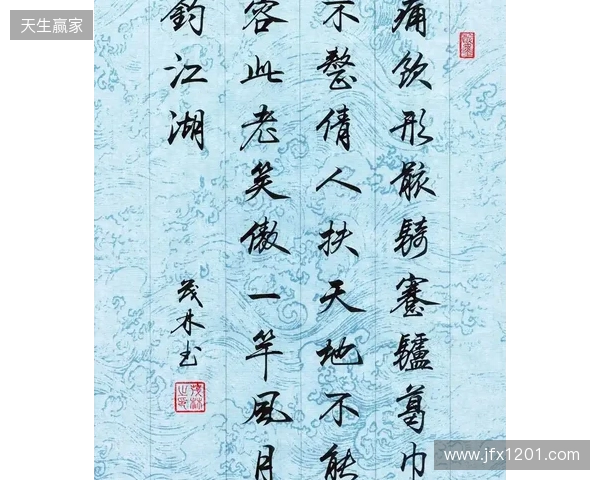 天生赢家
痛飲形骸騎蹇驢葛巾
不整倩人扶天地不能
容此老笑傲一竿風月
釣江湖
茂林书
www.jfx1201.com